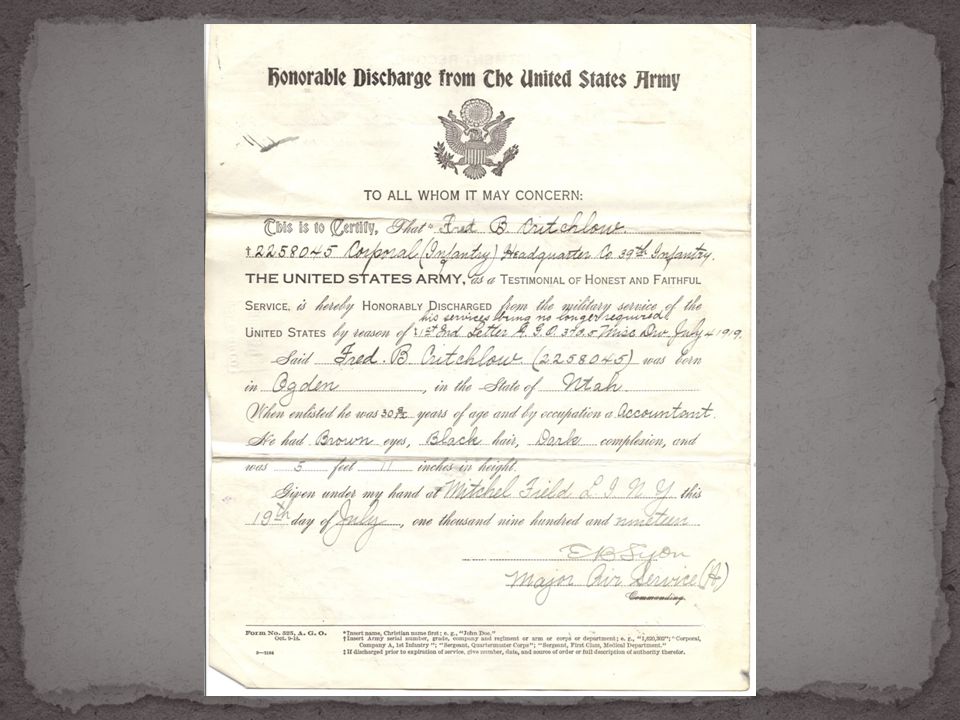 Honorable Discharge from The United States Army
TO ALL WHOM IT MAY CONCERN:
This is to Certify, That* Fred B Critchlow
†2258045 Corporal (Infantry) Headquarter Co 39th Infantry.
THE UNITED STATES ARMY, as a TESTIMONIAL OF HONEST AND FAITHFUL
SERVICE, is hereby HONORABLY DISCHARGED from the military service of the
his services being no longer required
UNITED STATES by reason of ‡1st Ind Letter A.G.O. Misc Div July 4 1919.
Said Fred. B Critchlow (2258045) was born
in Ogden, in the State of Utah
When enlisted he was 30 years of age and by occupation a Accountant.
He had Brown eyes, Black hair, Dark complexion, and
was 5 feet 11 inches in height.
Given under my hand at Mitchel Field L I N Y this
19th day of July, one thousand nine hundred and nineteen
E B Lyon
Major Air Service (A)
Commanding.
Form No. 525, A. G. O.
Oct. 9-18.
*Insert name, Christian name first; e. g., "John Doe."
†Insert Army serial number, grade, company and regiment or arm or corps or department; e. g., "1,620,302"; "Corporal,
Company A, 1st Infantry"; "Sergeant, Quartermaster Corps"; "Sergeant, First Class, Medical Department."
‡If discharged prior to expiration of service, give number, date, and source of order or full description of authority therefor.